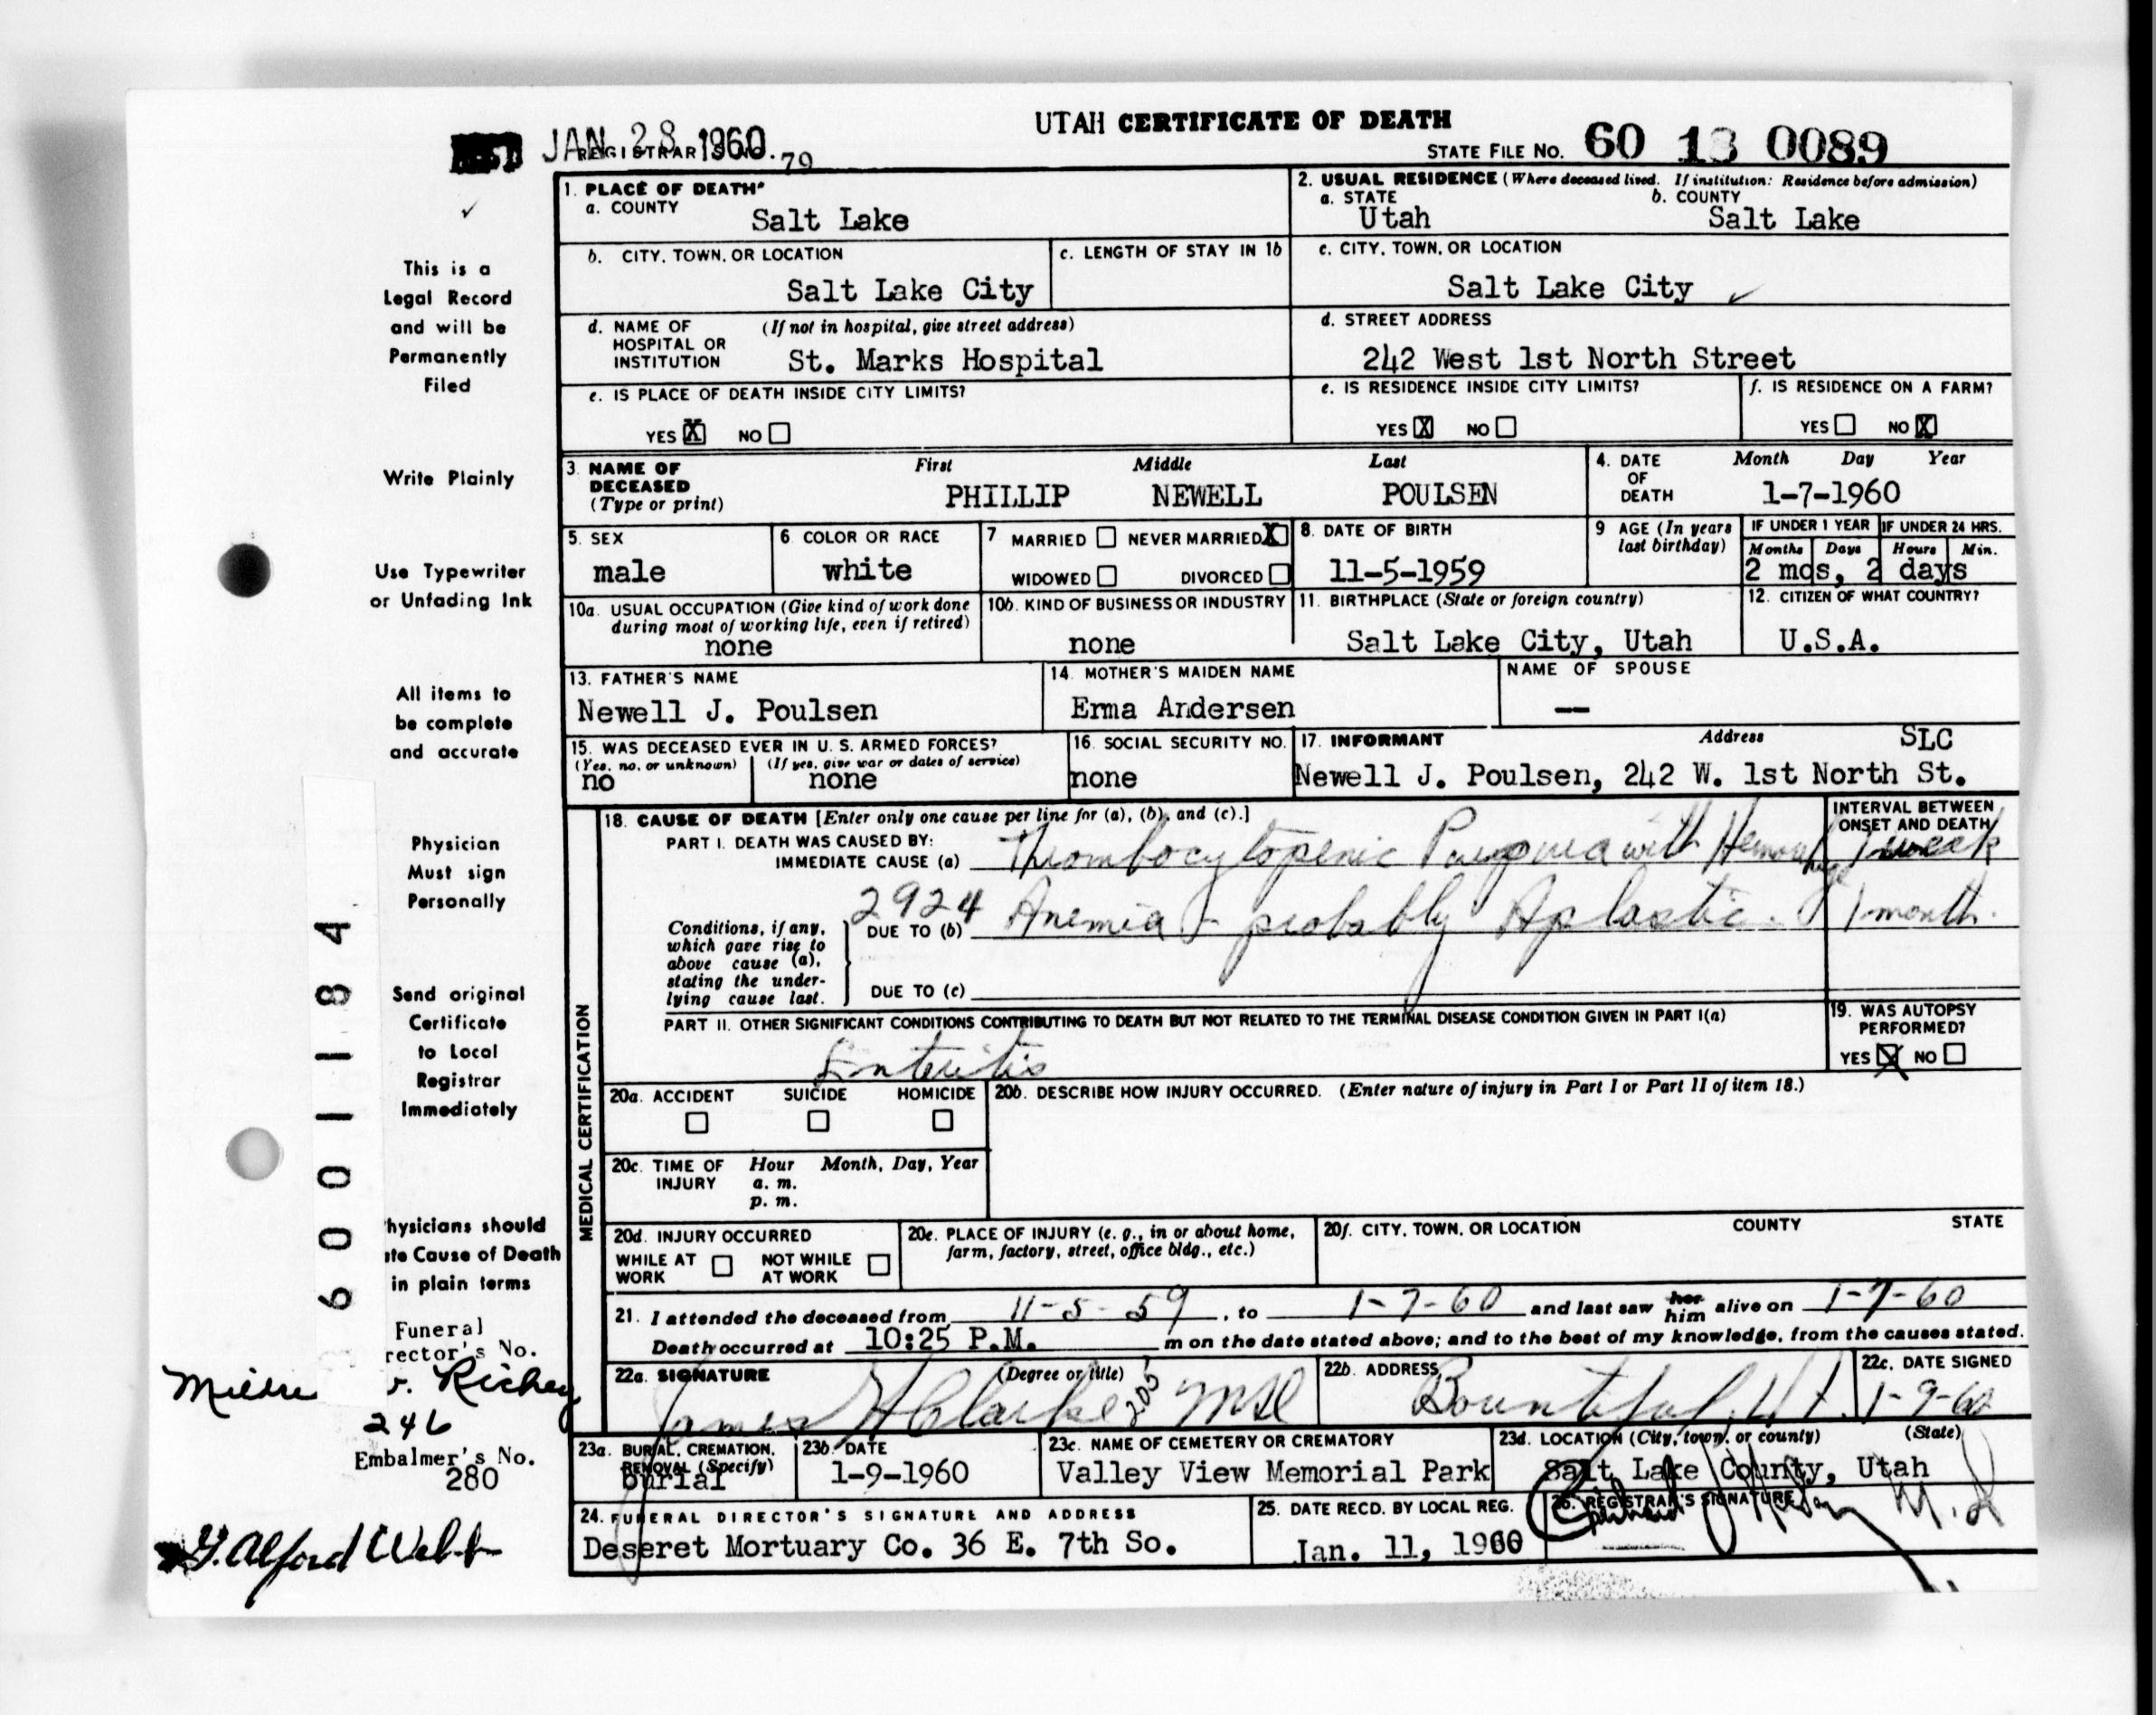 UTAH CERTIFICATE OF DEATH
JAN 28 1960
REGISTRAR'S NO. 79
STATE FILE NO. 60 18 0089
1. PLACE OF DEATH
a. COUNTY
Salt Lake
2. USUAL RESIDENCE (Where deceased lived. If institution: Residence before admission)
a. STATE
Utah
b. COUNTY
Salt Lake
b. CITY, TOWN, OR LOCATION
Salt Lake City
c. LENGTH OF STAY IN 1b
c. CITY, TOWN, OR LOCATION
Salt Lake City ✓
d. NAME OF HOSPITAL OR INSTITUTION
(If not in hospital, give street address)
St. Marks Hospital
d. STREET ADDRESS
242 West 1st North Street
e. IS PLACE OF DEATH INSIDE CITY LIMITS?
YES X NO
e. IS RESIDENCE INSIDE CITY LIMITS?
YES X NO
f. IS RESIDENCE ON A FARM?
YES NO X
3. NAME OF DECEASED (Type or print)
First Middle Last
PHILLIP NEWELL POULSEN
4. DATE OF DEATH
Month Day Year
1-7-1960
5. SEX
male
6. COLOR OR RACE
white
7 MARRIED NEVER MARRIED X
WIDOWED DIVORCED
8. DATE OF BIRTH
11-5-1959
9 AGE (In years last birthday)
IF UNDER 1 YEAR IF UNDER 24 HRS.
Months Days Hours Min.
2 mos, 2 days
10a. USUAL OCCUPATION (Give kind of work done during most of working life, even if retired)
none
10b. KIND OF BUSINESS OR INDUSTRY
none
11. BIRTHPLACE (State or foreign country)
Salt Lake City, Utah
12. CITIZEN OF WHAT COUNTRY?
U.S.A.
13. FATHER'S NAME
Newell J. Poulsen
14. MOTHER'S MAIDEN NAME
Erma Andersen
NAME OF SPOUSE
--
15. WAS DECEASED EVER IN U. S. ARMED FORCES?
(Yes, no, or unknown) (If yes, give war or dates of service)
no none
16. SOCIAL SECURITY NO.
none
17. INFORMANT Address SLC
Newell J. Poulsen, 242 W. 1st North St.
MEDICAL CERTIFICATION
18. CAUSE OF DEATH [Enter only one cause per line for (a), (b), and (c).]
INTERVAL BETWEEN ONSET AND DEATH
PART I. DEATH WAS CAUSED BY:
IMMEDIATE CAUSE (a) Thrombocytopenic Purpura with Hemorrhage 1 week
2924
Conditions, if any, which gave rise to above cause (a), stating the underlying cause last.
DUE TO (b) Anemia - probably Aplastic. 1 month.
DUE TO (c)
PART II. OTHER SIGNIFICANT CONDITIONS CONTRIBUTING TO DEATH BUT NOT RELATED TO THE TERMINAL DISEASE CONDITION GIVEN IN PART I(a)
Enteritis
19. WAS AUTOPSY PERFORMED?
YES X NO
20a. ACCIDENT SUICIDE HOMICIDE
20b. DESCRIBE HOW INJURY OCCURRED. (Enter nature of injury in Part I or Part II of item 18.)
20c. TIME OF INJURY
Hour Month, Day, Year
a. m.
p. m.
20d. INJURY OCCURRED
WHILE AT WORK NOT WHILE AT WORK
20e. PLACE OF INJURY (e. g., in or about home, farm, factory, street, office bldg., etc.)
20f. CITY, TOWN, OR LOCATION COUNTY STATE
21. I attended the deceased from 11-5-59, to 1-7-60 and last saw her him alive on 1-7-60
Death occurred at 10:25 P.M. m on the date stated above; and to the best of my knowledge, from the causes stated.
22a. SIGNATURE (Degree or title)
James H Clarke MD
205
22b. ADDRESS
Bountiful, Ut.
22c. DATE SIGNED
1-9-60
23a. BURIAL, CREMATION, REMOVAL (Specify)
burial
23b. DATE
1-9-1960
23c. NAME OF CEMETERY OR CREMATORY
Valley View Memorial Park
23d. LOCATION (City, town, or county) (State)
Salt Lake County, Utah
24. FUNERAL DIRECTOR'S SIGNATURE AND ADDRESS
Deseret Mortuary Co. 36 E. 7th So.
25. DATE RECD. BY LOCAL REG.
Jan. 11, 1960
26. REGISTRAR'S SIGNATURE
M.D
✓
This is a
Legal Record
and will be
Permanently
Filed
Write Plainly
Use Typewriter
or Unfading Ink
All items to
be complete
and accurate
Physician
Must sign
Personally
Send original
Certificate
to Local
Registrar
Immediately
hysicians should
ate Cause of Death
in plain terms
Funeral
rector's No.
Richey
246
Embalmer's No.
280
G. Alford Webb
6001184